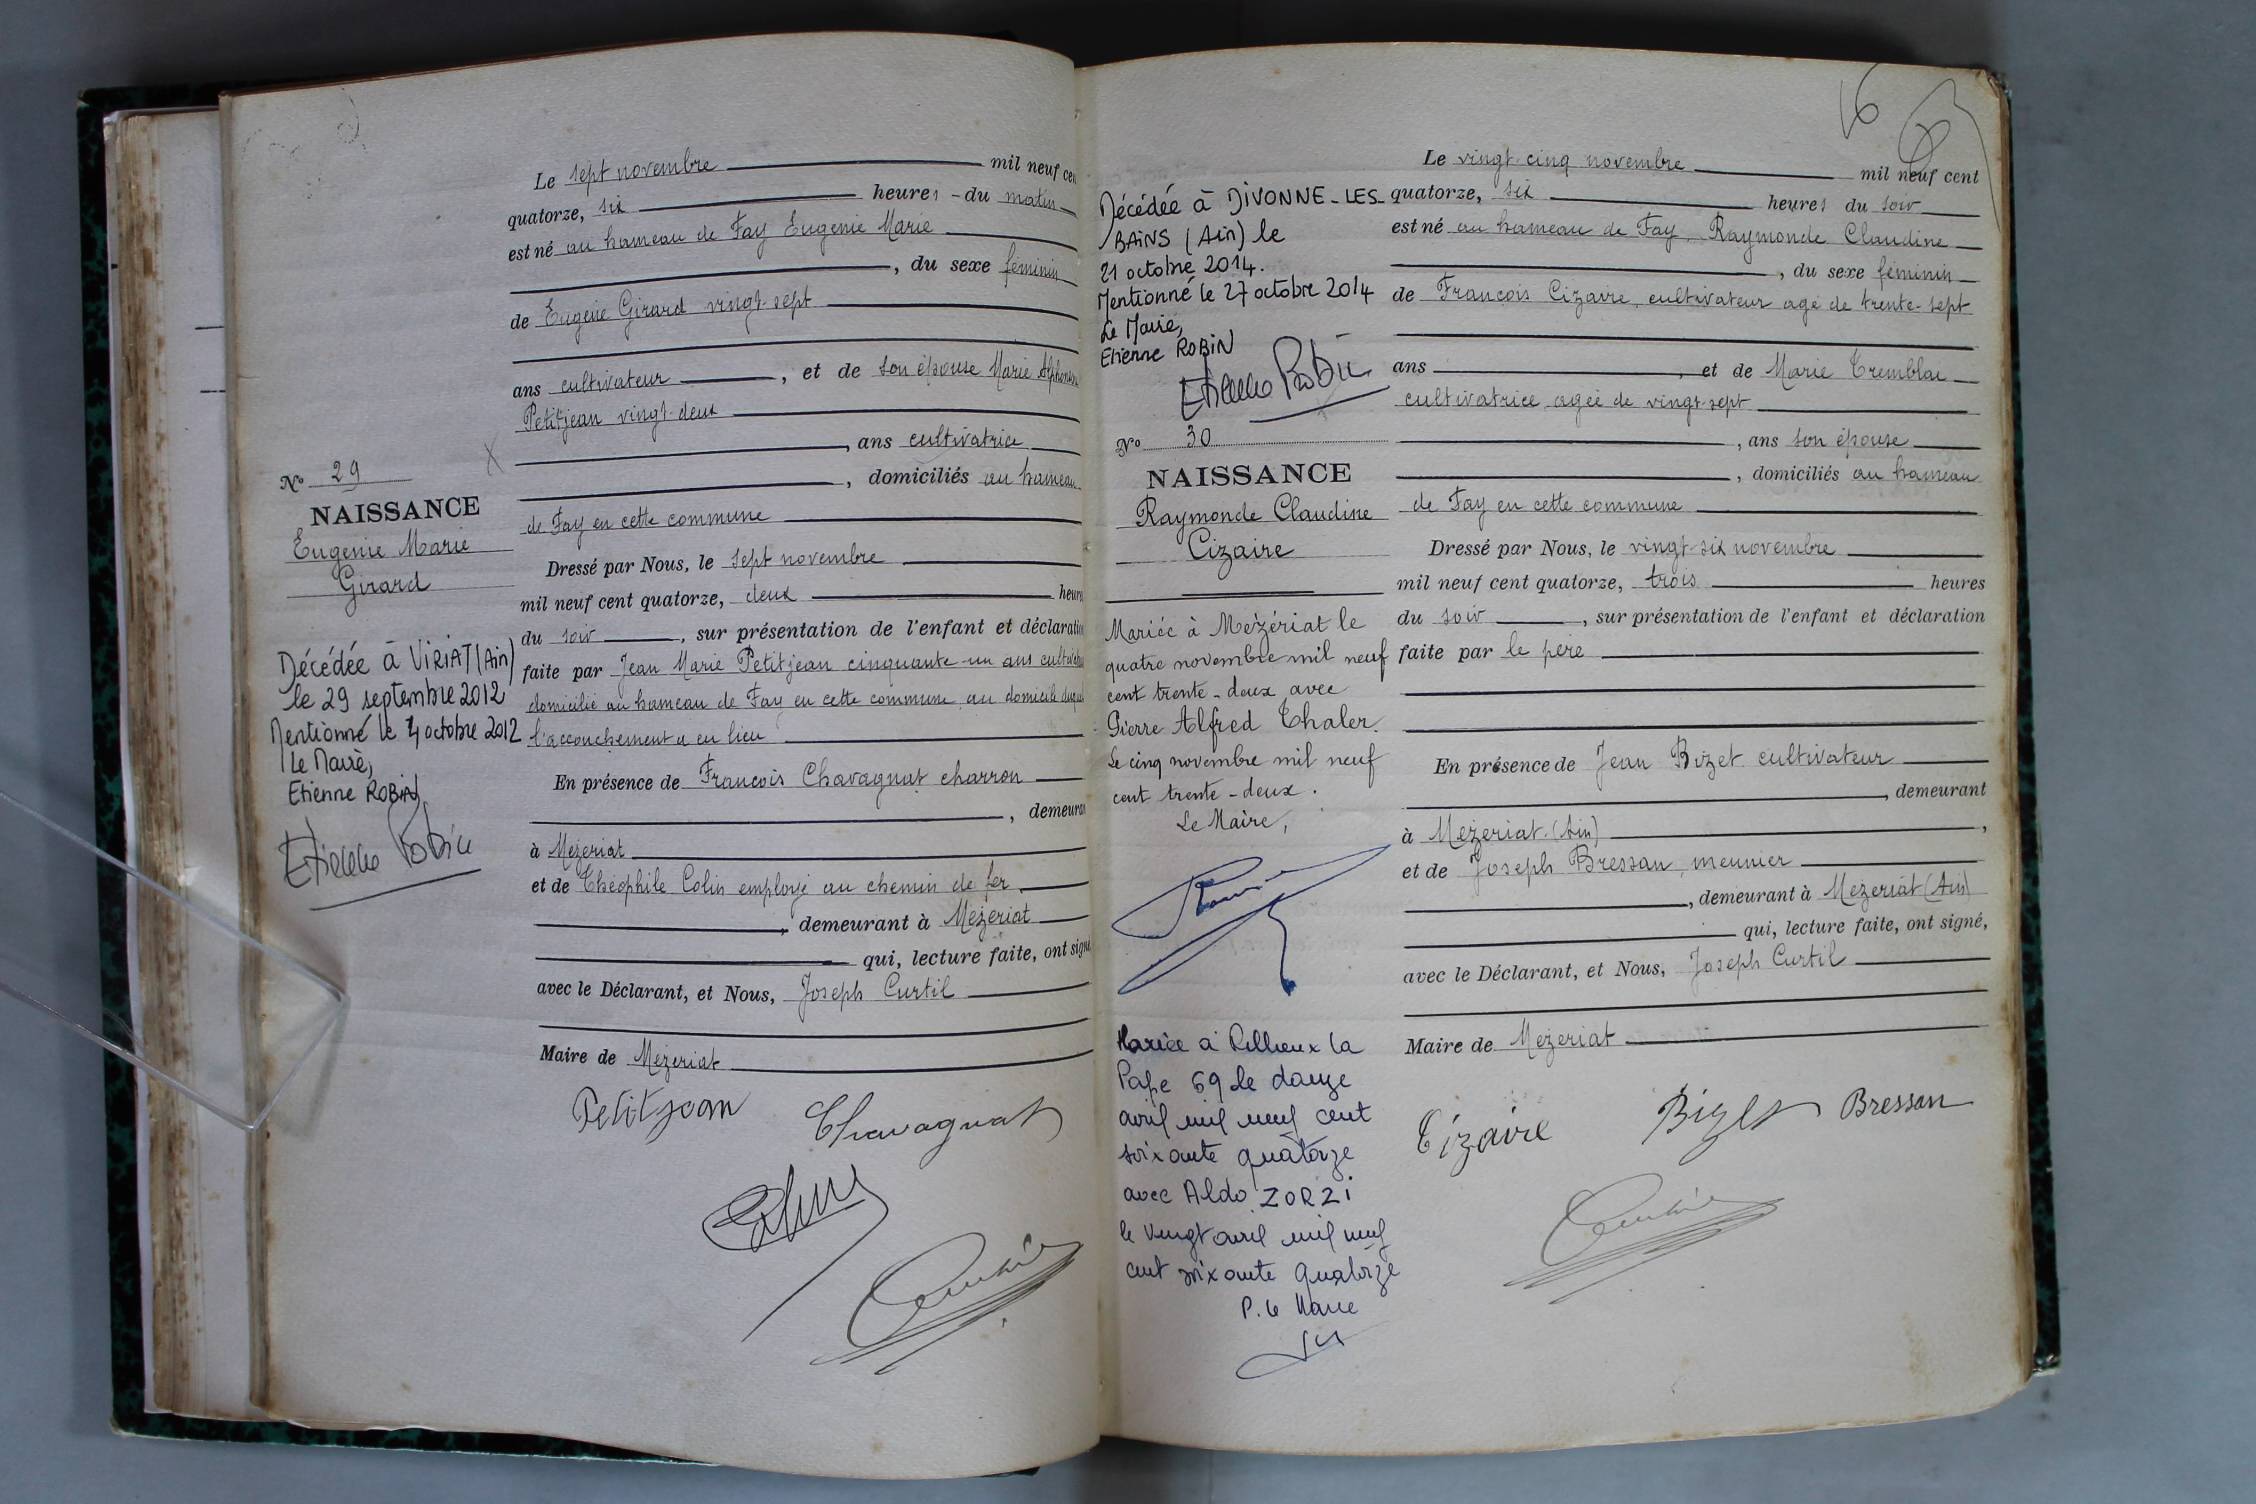 Le sept novembre mil neuf cen
quatorze, six heures - du matin
est né au hameau de Fay Eugenie Marie
, du sexe féminin
de Eugène Girard vingt-sept
ans cultivateur , et de son épouse Marie Alphonsine
Petitjean vingt-deux
, ans cultivatrice
, domiciliés au hameau
de Fay en cette commune
Dressé par Nous, le sept novembre
mil neuf cent quatorze, deux heures
du soir , sur présentation de l'enfant et déclaration
faite par Jean Marie Petitjean cinquante-un ans cultivateur
domicilié au hameau de Fay en cette commune au domicile duquel
l'accouchement a eu lieu
En présence de François Chavagnat charron
, demeurant
à Mézeriat
et de Théophile Colin employé au chemin de fer
, demeurant à Mézeriat
qui, lecture faite, ont signé
avec le Déclarant, et Nous, Joseph Curtil
Maire de Mézeriat
Petitjean Chavagnat
Colin
No 29
NAISSANCE
Eugenie Marie
Girard
Décédée à VIRIAT (Ain)
le 29 septembre 2012
Mentionné le 4 octobre 2012
Le Maire,
Etienne ROBIN
Etienne Robin
16
Décédée à DIVONNE-LES-
BAINS (Ain) le
21 octobre 2014.
Mentionné le 27 octobre 2014
Le Maire,
Etienne ROBIN
Etienne Robin
No 30
NAISSANCE
Raymonde Claudine
Cizaire
Mariée à Mézériat le
quatre novembre mil neuf
cent trente-deux avec
Pierre Alfred Thaler.
Le cinq novembre mil neuf
cent trente-deux.
Le Maire,
Mariée à Rillieux la
Pape 69 le douze
avril mil neuf cent
soixante quatorze
avec Aldo ZORZI
le vingt avril mil neuf
cent soixante quatorze
P. le Maire
Le vingt-cinq novembre mil neuf cent
quatorze, six heures du soir
est né au hameau de Fay, Raymonde Claudine
, du sexe féminin
de François Cizaire, cultivateur agé de trente-sept
ans , et de Marie Tremblai
cultivatrice agée de vingt-sept
, ans son épouse
, domiciliés au hameau
de Fay en cette commune
Dressé par Nous, le vingt-six novembre
mil neuf cent quatorze, trois heures
du soir , sur présentation de l'enfant et déclaration
faite par le père
En présence de Jean Bizet cultivateur
, demeurant
à Mézeriat (Ain) ,
et de Joseph Bressan, meunier
, demeurant à Mézeriat (Ain)
qui, lecture faite, ont signé,
avec le Déclarant, et Nous, Joseph Curtil
Maire de Mézeriat
Cizaire Bizet Bressan